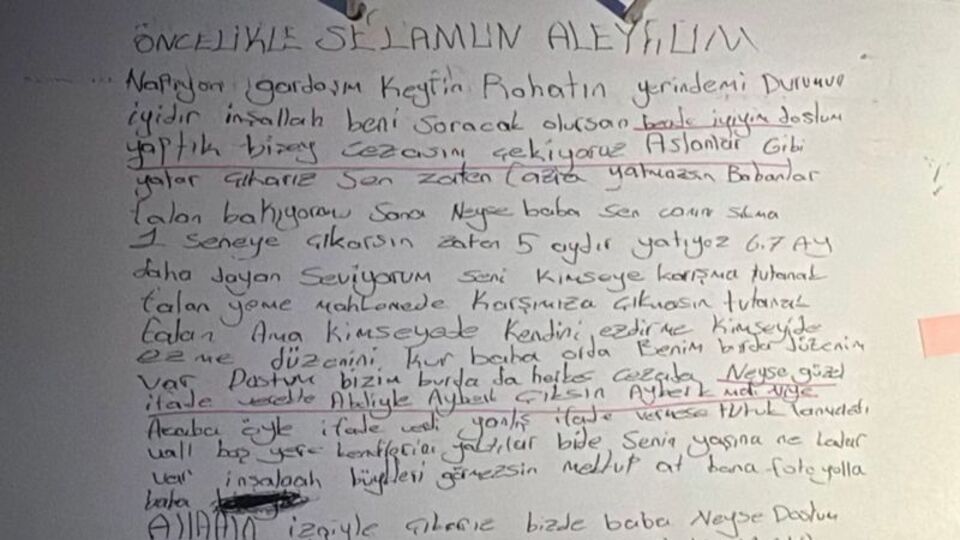 ÖNCELIKLE SELAMUN ALEYKUM
Napıyon gardaşım Keyfin Rahatın yerindemi Durumun
iyidir inşallah beni soracak olursan bende iyiyim dostum
yaptık bizey cezasını çekiyoruz Aslanlar Gibi
yatar çıkarız Sen zaten fazla yatmazsın Babanlar
falan bakıyorum Sana Neyse baba sen canın sıkma
1 Seneye çıkarsın zaten 5 aydır yatıyoz 6.7 AY
daha dayan Seviyorum seni kimseye karışma tutanak
falan yeme mahkemede karşımıza çıkmasın tutanak
falan Ama kimseyede kendini ezdirme kimseyide
ezme düzenini kur baba orda Benim burda düzenim
var Dostum bizim burda da herkes cezada Neyse güzel
ifade Abeliyle Ayberk çıksın Ayberk niye
Acaba öyle ifade verdi yanlış ifade vermese
vall boş yere kendilerini yaktılar bide Senin yaşına ne kadar
var inşalaah büyükleri görmezsin mektup at bana foto yolla
baba
Allahın izniyle çıkarız bizde baba Neyse Dostum